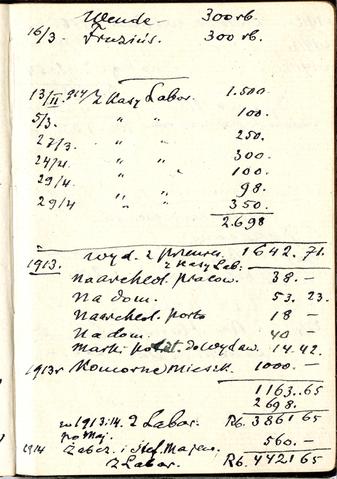 Wende - 300 rb.
16/3. Fruzińs. 300 rb.
13/II. 914 z Kasy Labor. 1.500.
5/3. " " 100.
27/3. " " 250.
24/4. " " 300.
29/4 " " 100.
" " 98.
29/4 350.
2.698
1913. wyd. z 1642.71.
z Kasy Lab:
na archeol. pracow. 38.-
na dom. 53.23.
na archeol. porto 18-
na dom. 40-
marki do wydaw. 14.42.
1913r Komorne mieszk. 1000.-
1163.65
2698.
w 1913:14. z Labor. Rb. 3861 65
po Maj.
1914 i Stef. 560.-
z Labor. Rb. 4421 65